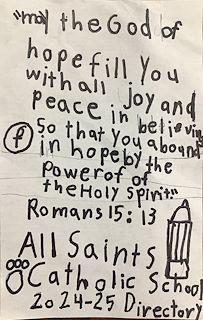 "may the God of
hope fill you
with all joy and
peace in believing
so that you abound
in hope by the
power of of
the Holy Spirit."
Romans 15:13
All Saints
Catholic School
2024-25 Directory